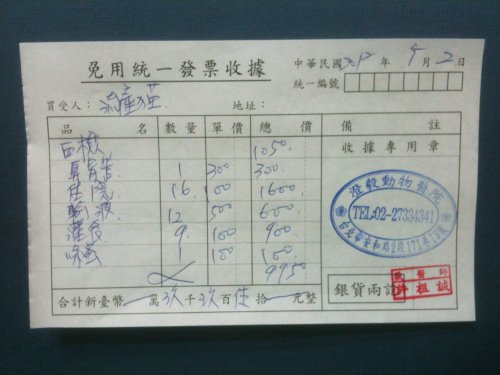 免用統一發票收據
中華民國 年 9月2日
統一編號
買受人： 流產猫 地址：
品名 數量 單價 總價 備註
血檢 1050.
收據專用章
1 300 300.
住院 16 100 1600
輸液 12 500 600
灌食 9 100 900
1 100 100
9950
澄毅動物醫院
TEL:02-27334341
台北市安和路2段171巷18號
獸醫師
許祖誠
銀貨兩訖
合計新臺幣 萬玖千玖百伍拾 元整